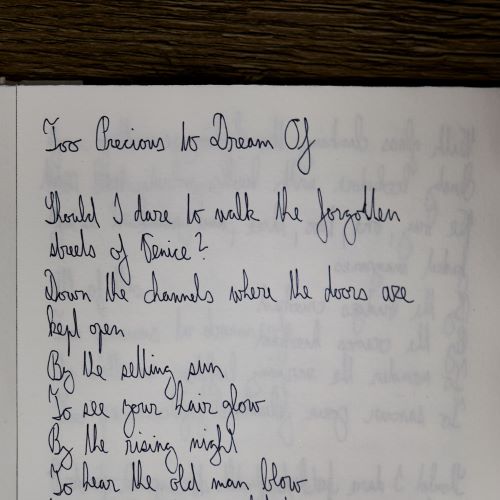 Too Precious to Dream Of
Should I dare to walk the forgotten
streets of Venice?
Down the channels where the doors are
kept open
By the setting sun
To see your hair glow
By the rising night
To hear the old man blow